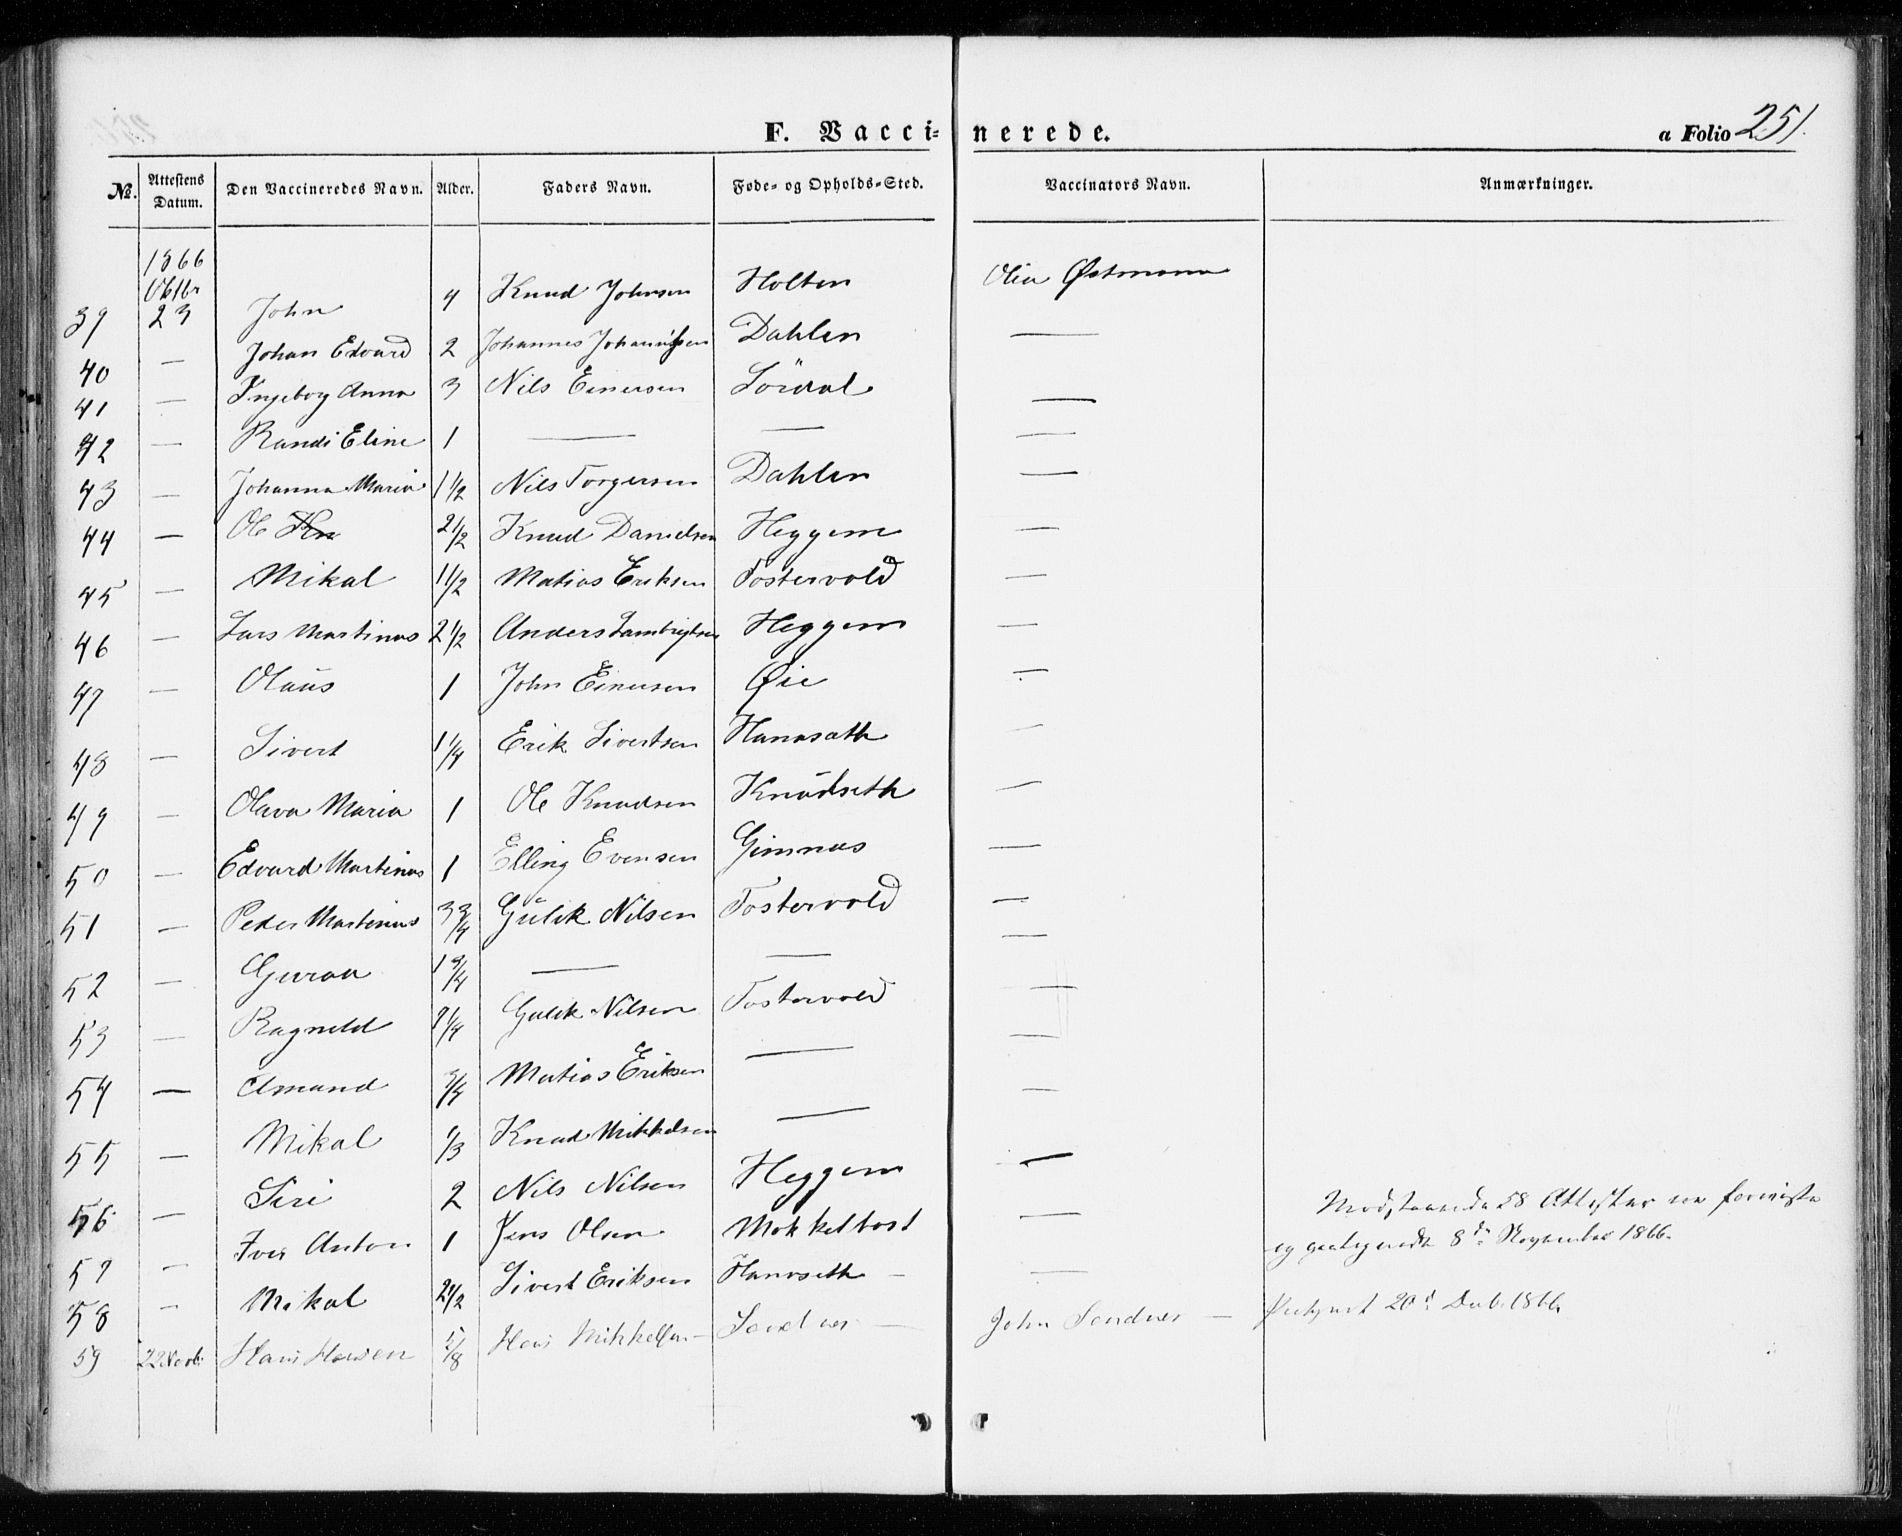 F. Vaccinerede. a Folio 251.
№. Attestens Datum. Den Vaccineredes Navn. Alder. Faders Navn. Føde- og Opholds-Sted. Vaccinators Navn. Anmærkninger.
1866
Oktbr
39 23 John 4 Knud Johnsen Holten Olia Østmann
40 — Johan Edvard 2 Johannes Johannesen Dahlen —
41 — Ingeborg Anna 3 Nils Einersen Lördal —
42 — Randi Eline 1 — — —
43 — Johanna Maria 1 1/2 Nils Torgersen Dahlen —
44 — Ole Kn 2 1/2 Knud Danielsen Heggem —
45 — Mikal 1 1/2 Matias Eriksen Tostervold —
46 — Lars Martinus 2 1/2 Anders Lambrigtsen Heggem —
47 — Olaus 1 John Einersen Øie —
48 — Sivert 1 1/4 Erik Sivertsen Hanaseth —
49 — Olava Maria 1 Ole Knudsen Knudseth —
50 — Edvard Martinus 1 Elling Evensen Gimnas —
51 — Peder Martinus 3 3/4 Gulik Nilsen Tostervold —
52 — Guraa 1 3/4 — — —
53 — Ragnild 1/4 Gulik Nilsen Tostervold —
54 — Amund 3/4 Matias Eriksen — —
55 — Mikal 1/3 Knud Mikkelsen — —
56 — Siri 2 Nils Nilsen Heggem —
57 — Iver Anton 1 Jens Olsen Mokkelbost — Modstaaende 58 Attester
58 — Mikal 2 1/2 Sivert Eriksen Hanaseth — — og 8de November 1866.
59 22 Novb: Hans Hansen 5/8 Hans Mikkelsen — Sandnes — John Sandnes — 20d Decb. 1866.